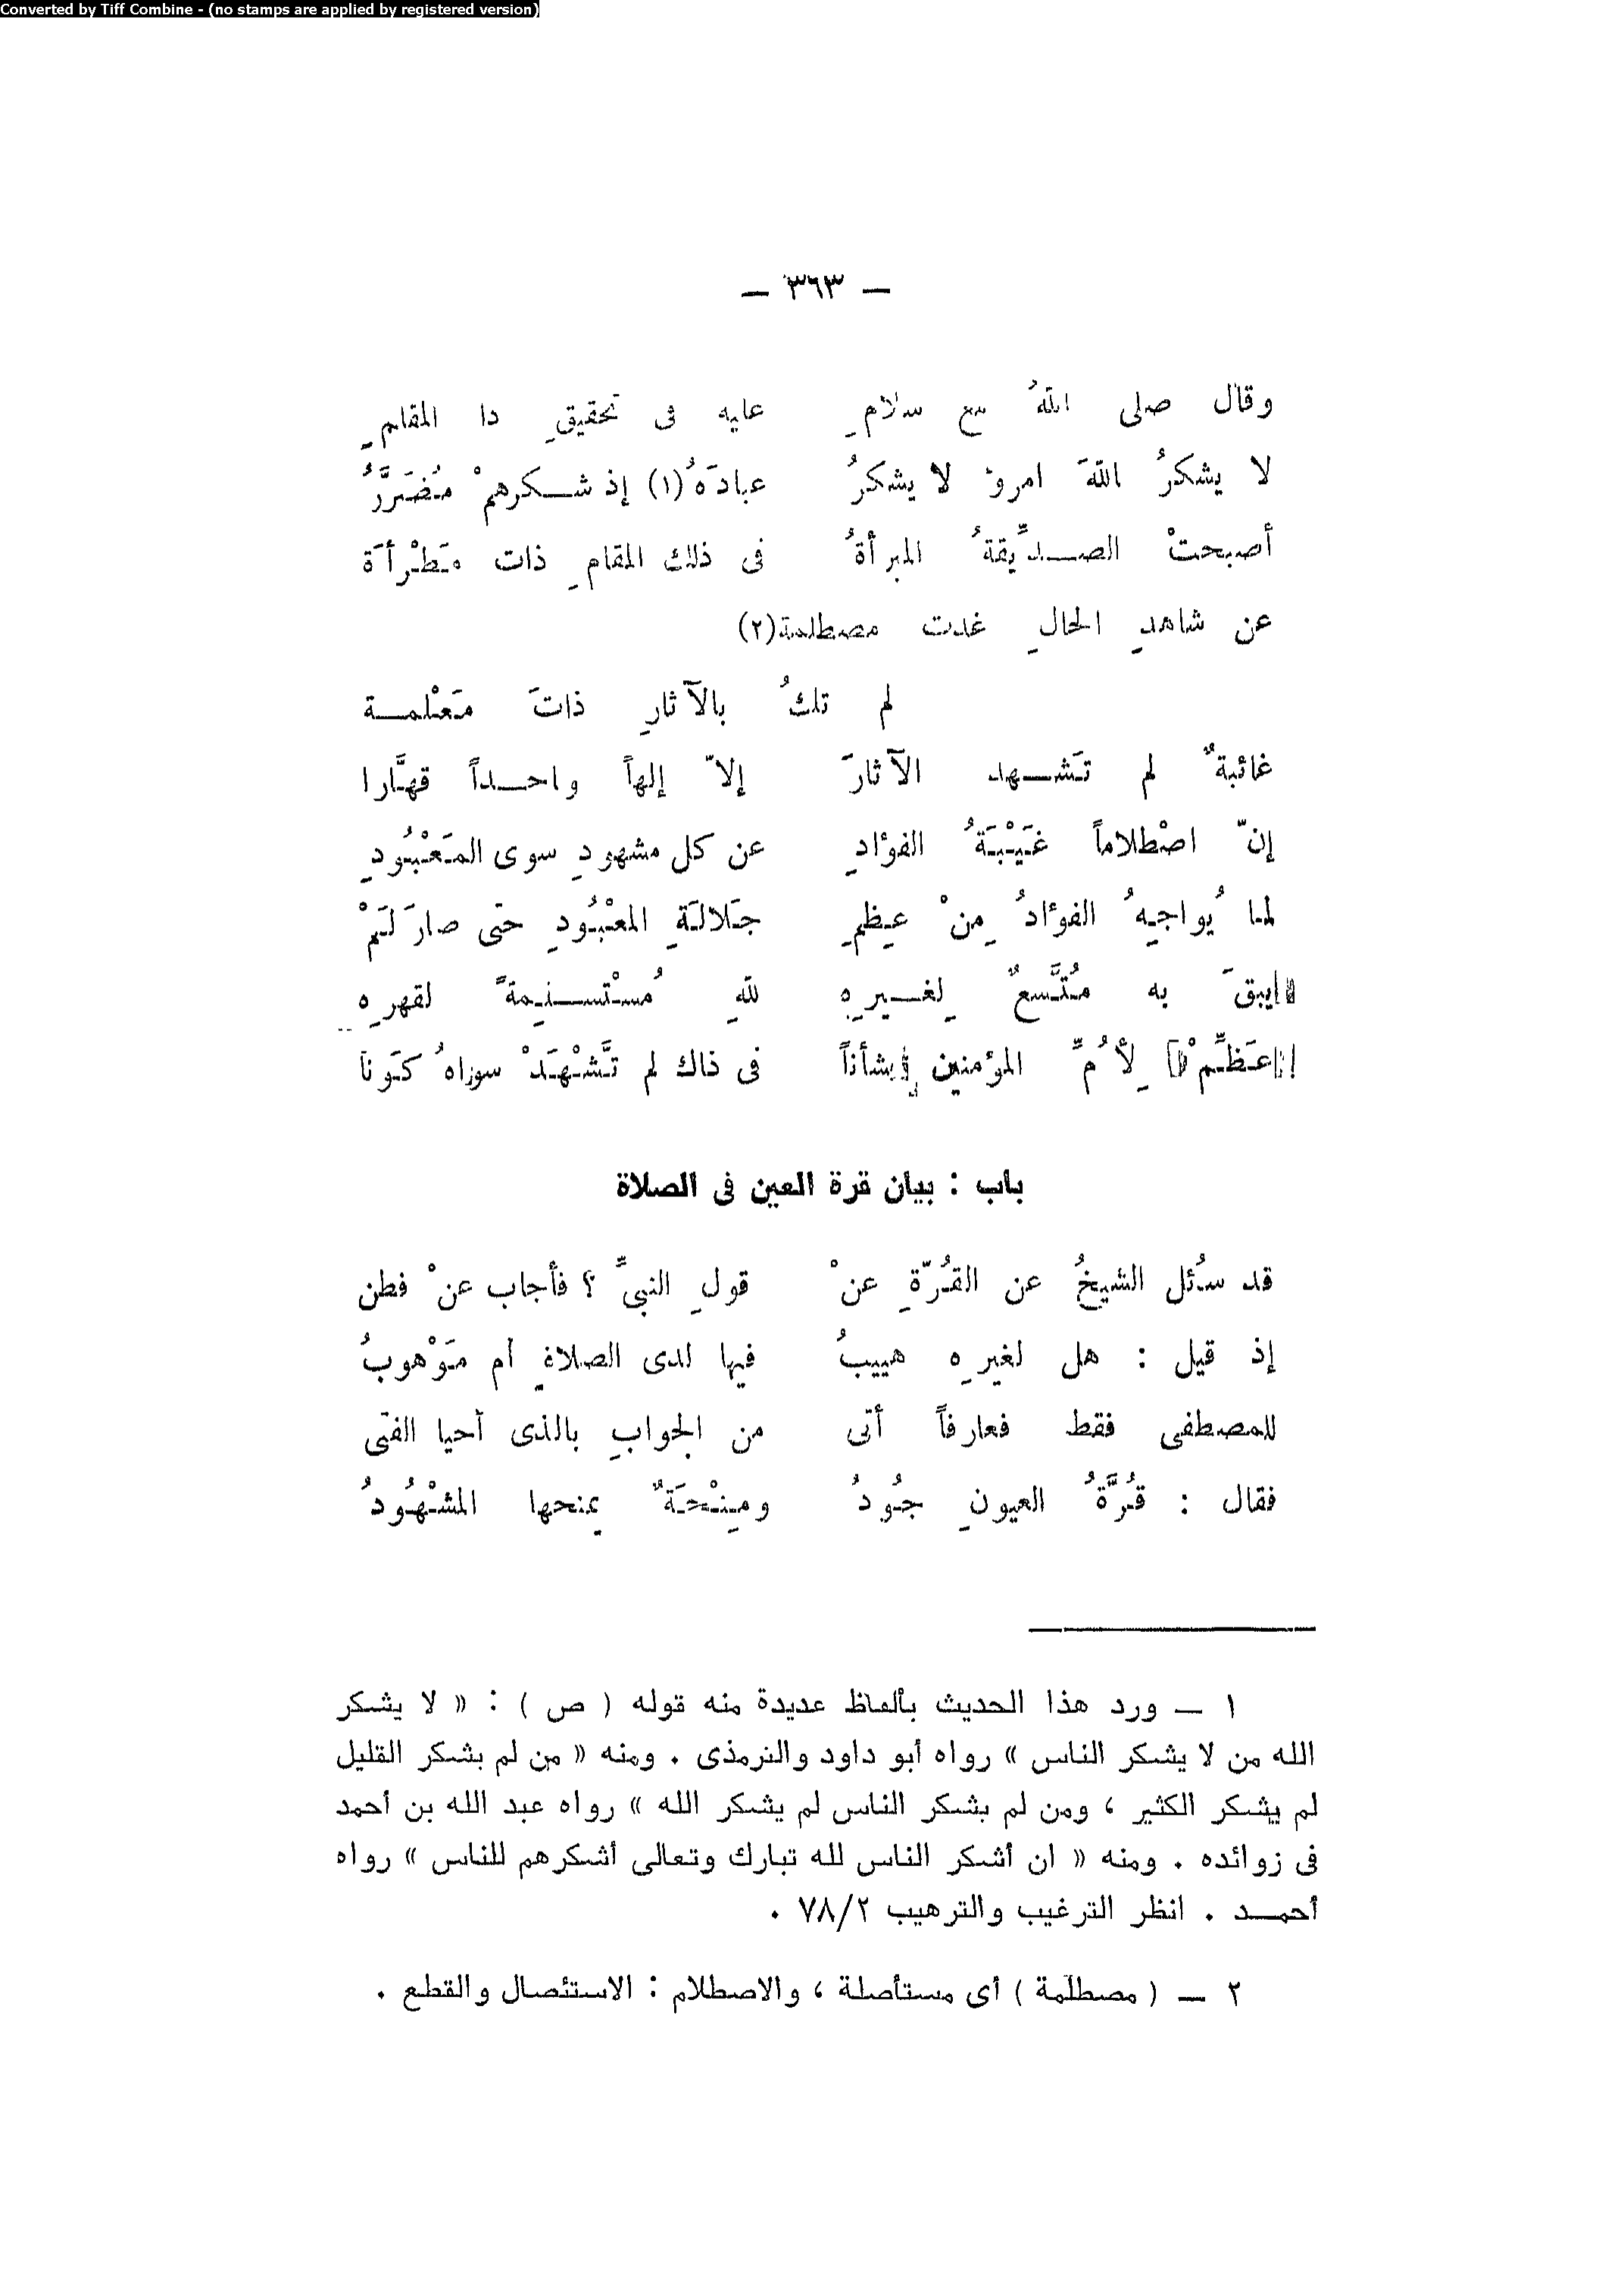 Converted by Tiff Combine - (no stamps are applied by registered version)
— ٣٦٣ —
وقال صلى اللهُ مع سلامِ عليه فى تحقيقِ ذا المقامِ
لا يشكرُ اللهَ امرؤ لا يشكرُ عبادَهُ(١) إذ شـكرهمْ مُضَرَّرُ
أصبحتْ الصـدِّيقةُ المبرأةُ فى ذلك المقامِ ذات مَطْرأَة
عن شاهدِ الحالِ غدت مصطلمة(٢)
لم تكُ بالآثارِ ذاتَ مَعْلمـة
غائبةٌ لم تَشـهد الآثارَ إلاّ إلهاً واحـداً قهَّارا
إنّ اصْطلاماً غَيْبَةُ الفؤادِ عن كل مشهودِ سوى المَعْبُودِ
لما يُواجِهُ الفؤادُ مِنْ عِظمِ جَلالَةِ المعْبُودِ حتى صارَ لَمْ
يبقَ به مُتَّسعٌ لِغـيرِهِ للهِ مُسْتسـلِمةً لقهرِه
عَظِّمْ لِأُمِّ المؤمنين شأناً فى ذاك لم تَشْهَدْ سواهُ كَونا
باب : بيان قرة العين فى الصلاة
قد سُئل الشيخُ عن القُرّةِ عنْ قولِ النبىِّ ؟ فأجاب عنْ فطن
إذ قيل : هل لغيرِه هييبُ فيها لدى الصلاةِ أم مَوْهوبُ
للمصطفى فقط فعارفاً أتى من الجوابِ بالذى أحيا الفتى
فقال : قُرَّةُ العيونِ جُودُ ومِنْحَةٌ يمنحها المشْهُودُ
١ — ورد هذا الحديث بألفاظ عديدة منه قوله ( ص ) : « لا يشكر
الله من لا يشكر الناس » رواه أبو داود والترمذى . ومنه « من لم يشكر القليل
لم يشكر الكثير ، ومن لم يشكر الناس لم يشكر الله » رواه عبد الله بن أحمد
فى زوائده . ومنه « ان أشكر الناس لله تبارك وتعالى أشكرهم للناس » رواه
أحمـد . انظر الترغيب والترهيب ٧٨/٢ .
٢ — ( مصطلمة ) أى مستأصلة ، والاصطلام : الاستئصال والقطع .